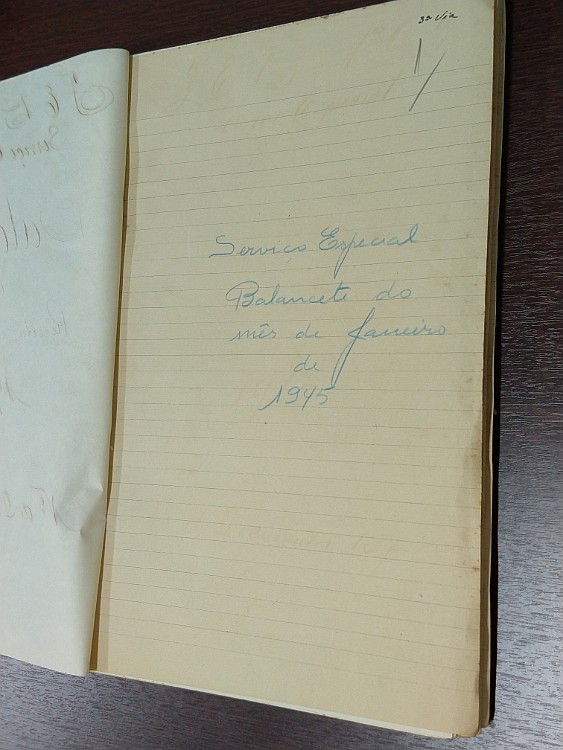 3ª Via
1/
Servico Especial
Balancete do
mês de Janeiro
de
1945